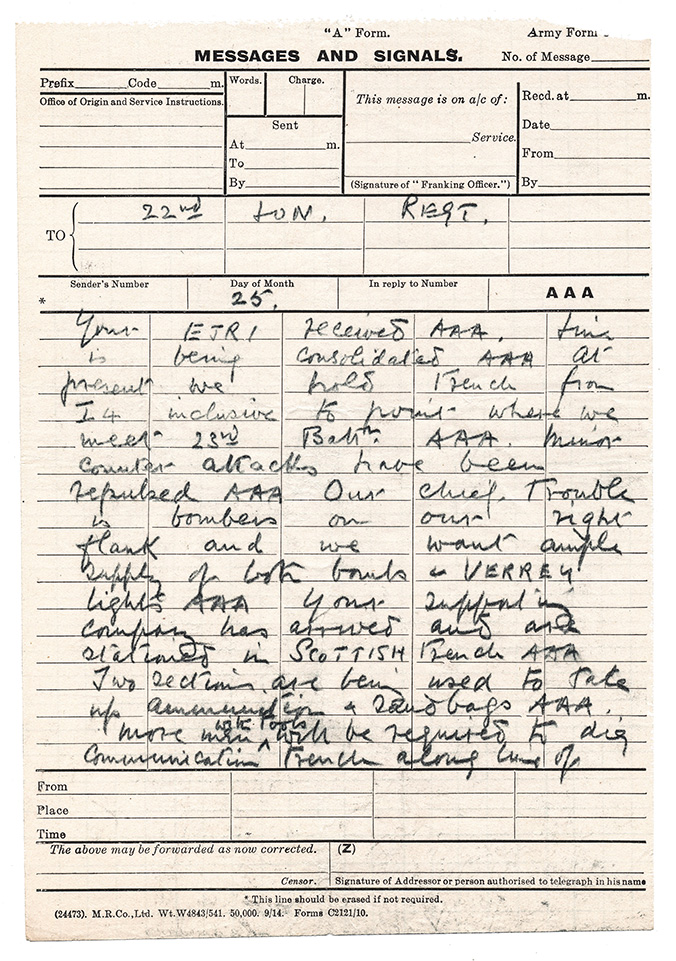 "A" Form.
Army Form
MESSAGES AND SIGNALS.
No. of Message
Prefix Code m.
Words. Charge.
This message is on a/c of:
Recd. at m.
Office of Origin and Service Instructions.
Sent
Date
At m.
Service.
From
To
By
(Signature of "Franking Officer.")
By
TO
22nd LON. REGT.
Sender's Number
Day of Month
In reply to Number
AAA
*
25.
Your EJR1 received AAA. Line
is being consolidated AAA At
present we hold trench from
I4 inclusive to point where we
meet 23rd Battn. AAA. Minor
counter attacks have been
repulsed AAA Our chief trouble
is bombers on our right
flank and we want ample
supply of both bombs & VERREY
lights AAA Your supporting
company has arrived and are
stationed in SCOTTISH trench AAA
Two sections are being used to take
up ammunition & sandbags AAA.
with tools
more men will be required to dig
communication ^ trench along line of
From
Place
Time
The above may be forwarded as now corrected.
(Z)
Censor.
Signature of Addressor or person authorised to telegraph in his name
* This line should be erased if not required.
(24473). M.R.Co., Ltd. Wt.W4843/541. 50,000. 9/14. Forms C2121/10.